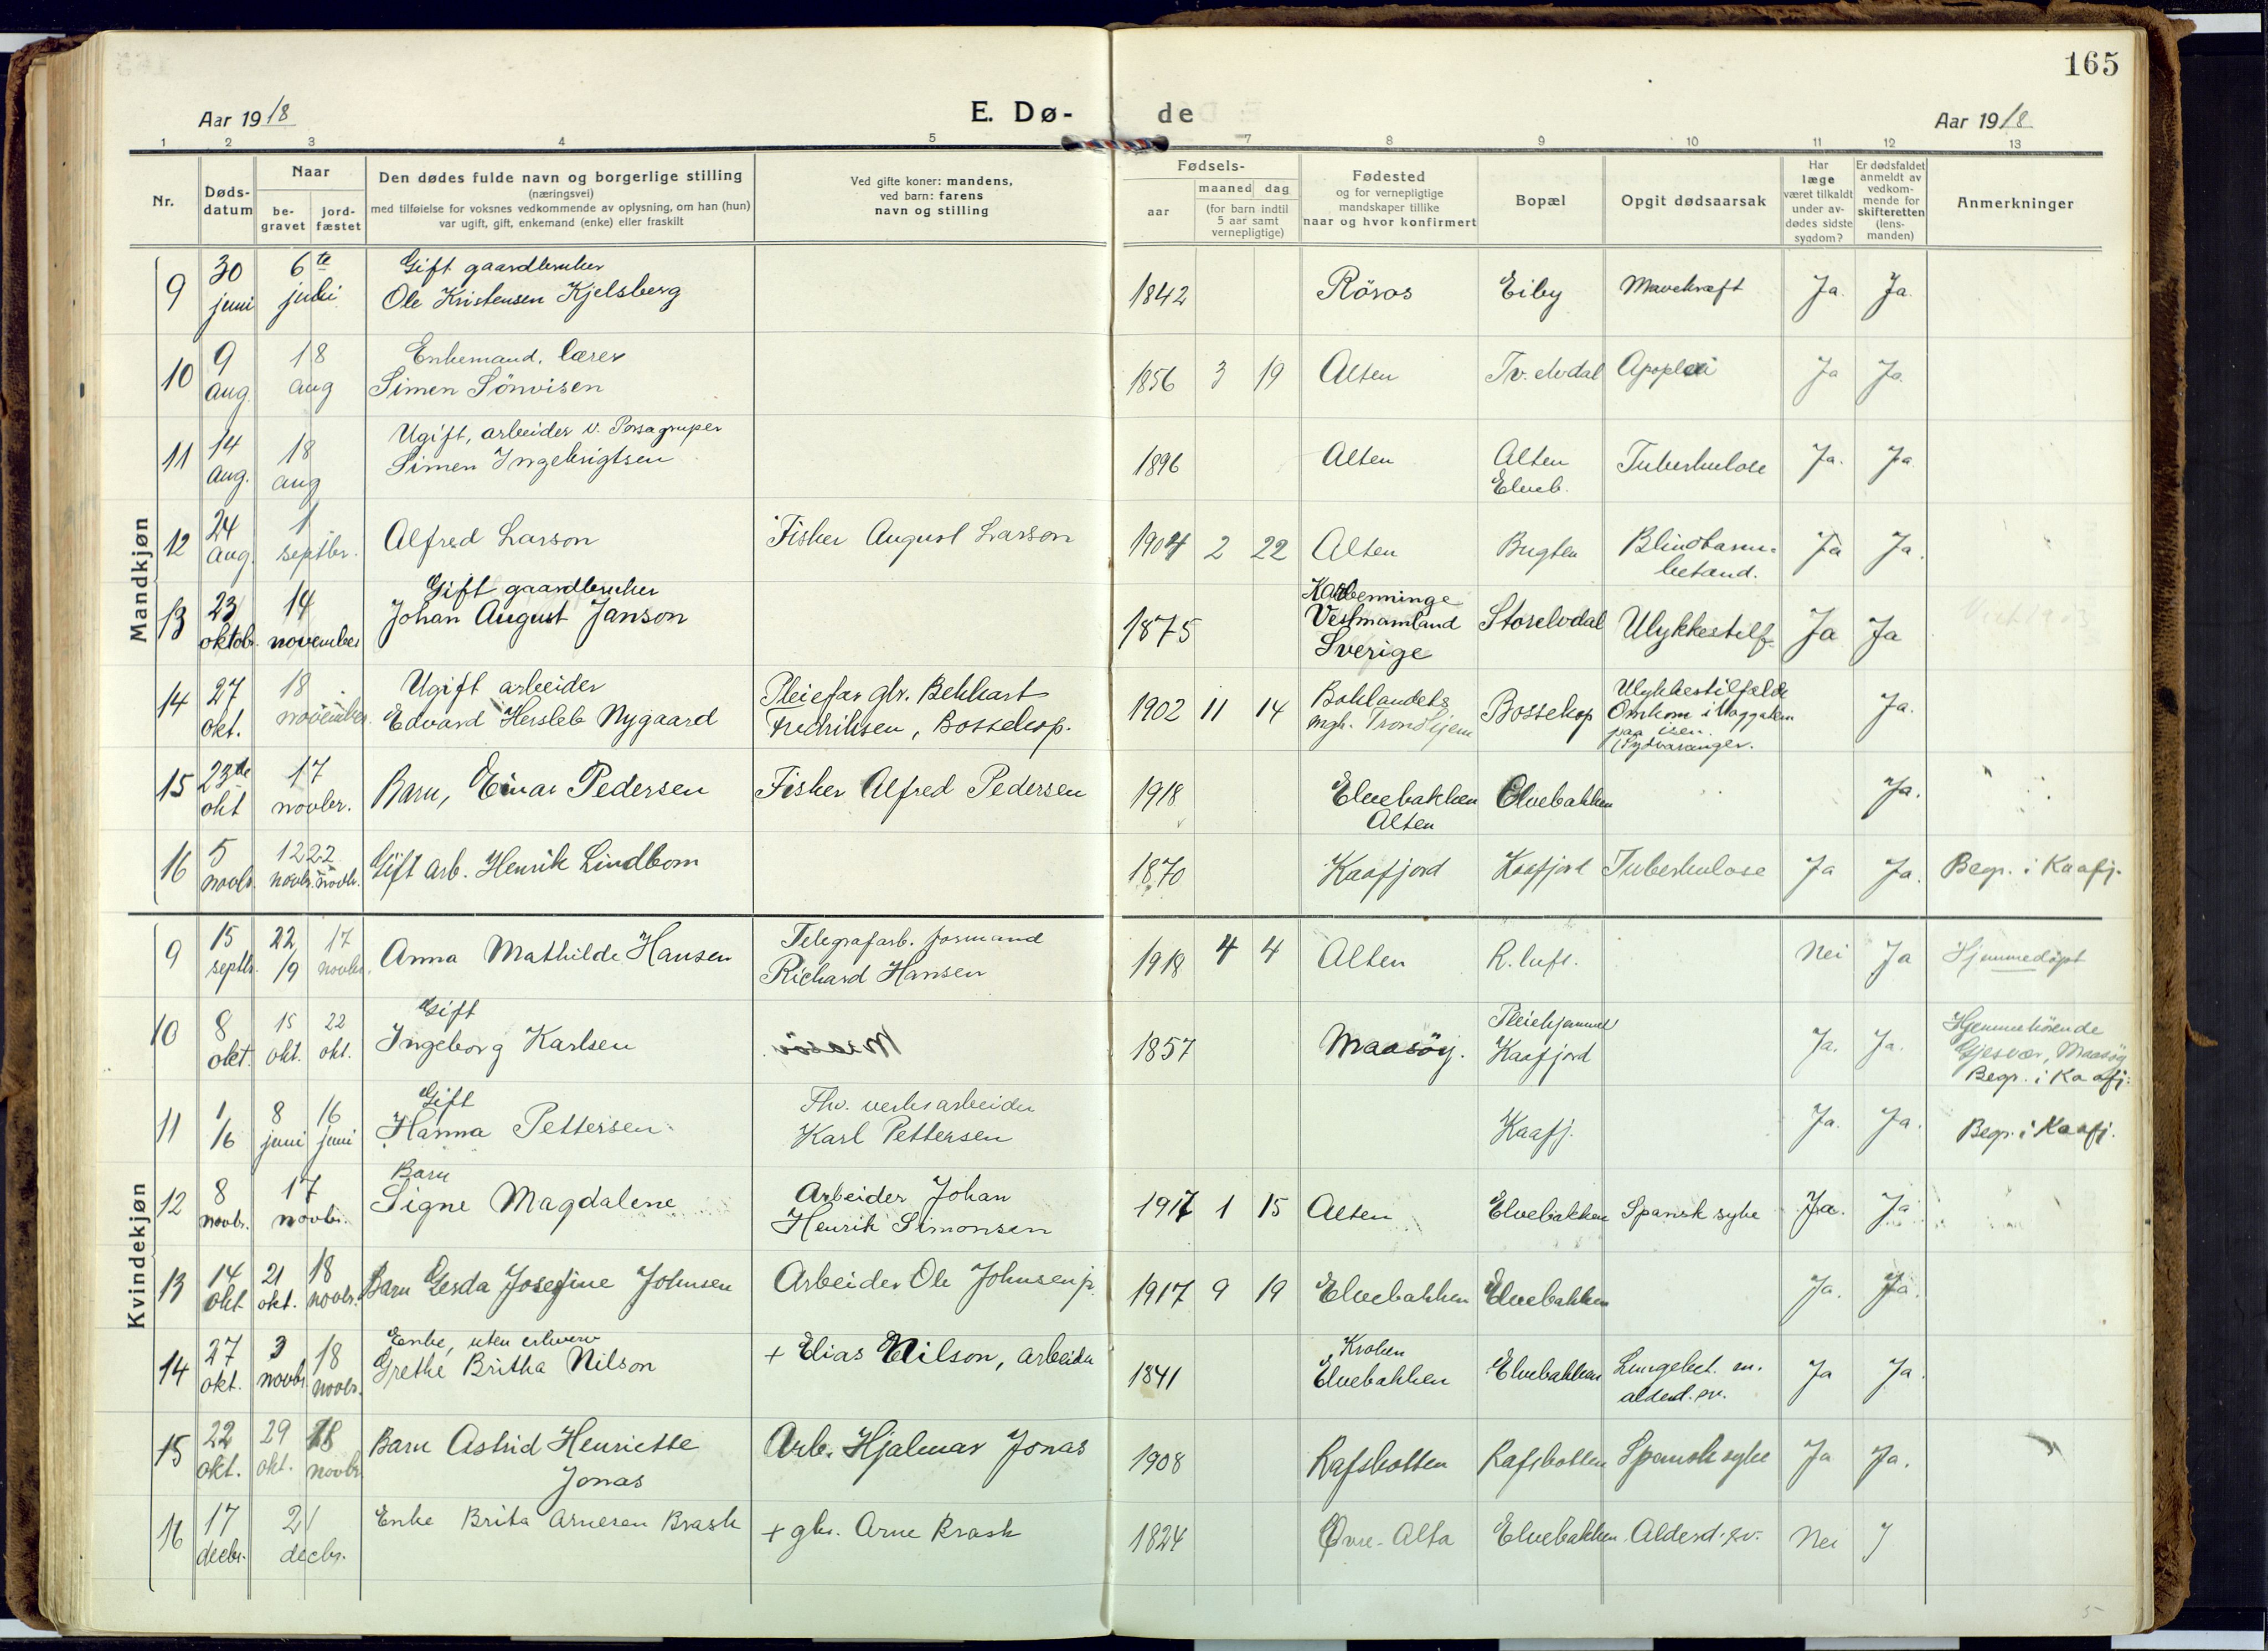 165
Aar 1918
E. Dø-
de
Aar 1918
1 2 3 4 5 7 8 9 10 11 12 13
Nr.
Døds-
datum
Naar
be-
gravet
jord-
fæstet
Den dødes fulde navn og borgerlige stilling
(næringsvei)
med tilføielse for voksnes vedkommende av oplysning, om han (hun)
var ugift, gift, enkemand (enke) eller fraskilt
Ved gifte koner: mandens,
ved barn: farens
navn og stilling
Fødsels-
aar
maaned dag
(for barn indtil
5 aar samt
vernepligtige)
Fødested
og for vernepligtige
mandskaper tillike
naar og hvor konfirmert
Bopæl
Opgit dødsaarsak
Har
læge
været tilkaldt
under av-
dødes sidste
sygdom?
Er dødsfaldet
anmeldt av
vedkom-
mende for
skifteretten
(lens-
manden)
Anmerkninger
Mandkjøn
9 30 juni 6te juli
Gift gaardbruker
Ole Kristensen Kjelsberg
1842 Röros Eiby Mavekræft Ja. Ja.
10 9 aug. 18 aug
Enkemand, lærer
Simen Sönvisen
1856 3 19 Alten Tv. elvdal Apoplexi Ja Ja.
11 14 aug. 18 aug
Ugift, arbeider v. Porsagruper
Simen Ingebrigtsen
1896 Alten Alten
Elveb.
Tuberkulose Ja. Ja
12 24 aug. 1 septbr.
Alfred Larson
Fisker August Larson
1904 2 22 Alten Bugten Blindtarm-
betænd.
Ja Ja.
13 23 oktob. 14 november
Gift gaardbruker
Johan August Janson
1875 Karbenninge
Vestmanland
Sverige
Storelvdal Ulykkestilf. Ja Ja
14 27 okt. 18 november.
Ugift arbeider
Edvard Hersleb Nygaard
Pleiefar gbr. Bekkart
Fredriksen, Bossekop.
1902 11 14 Baklandets
mgh. Trondhjem
Bossekop Ulykkestilfælde
Omkom i Vaggatem
paa isen.
(Sydvaranger.
Ja.
15 23de okt 17 novbr.
Barn, Einar Pedersen
Fisker Alfred Pedersen
1918 Elvebakken
Alten
Elvebakken Ja.
16 5 novbr. 12 novbr. 22 novb.
Gift arb. Henrik Lindbom
1870 Kaafjord Kaafjord Tuberkulose Ja Ja. Begr. i Kaafj.
Kvindekjøn
9 15 septbr. 22/9 17 novbr.
Anna Mathilde Hansen
Telegrafarb. formand
Richard Hansen
1918 4 4 Alten R. luft. Nei Ja Hjemmedöpt
10 8 okt. 15 okt. 22 okt.
Gift
Ingeborg Karlsen
1857 Maasöy. Pleiehjemmet
Kaafjord
Ja. Ja. Hjemmehörende
Gjesvær, Maasöy
Begr. i Kaafj.
11 1/6 8 juni 16 juni
Gift
Hanna Pettersen
Fhv. verksarbeider
Karl Pettersen
Kaafj. Ja. Ja. Begr. i Kaafj.
12 8 novbr. 17 novbr.
Barn
Signe Magdalene
Arbeider Johan
Henrik Simonsen
1917 1 15 Alten Elvebakken Spansk syke Ja. Ja
13 14 okt 21 okt. 18 novbr.
Barn Gerda Josefine Johnsen
Arbeider Ole Johnsen jr.
1917 9 19 Elvebakken Elvebakken Ja. Ja.
14 27 okt. 3 novbr 18 novbr.
Enke, uten erhverv
Grethe Britha Nilson
+ Elias Nilson, arbeider
1841 Kroken
Elvebakken
Elvebakken Lungebet. m.
alderd. sv.
Ja Ja.
15 22 okt. 29 okt. 18 novbr.
Barn Astrid Henriette
Jonas
Arb. Hjalmar Jonas
1908 Rafsbotten Rafsbotten Spansk syke Ja Ja.
16 17 decbr. 21 decbr.
Enke Brita Arnesen Brask
+ gbr. Arne Brask
1824 Övre-Alta Elvebakken Alderd. sv. Nei J